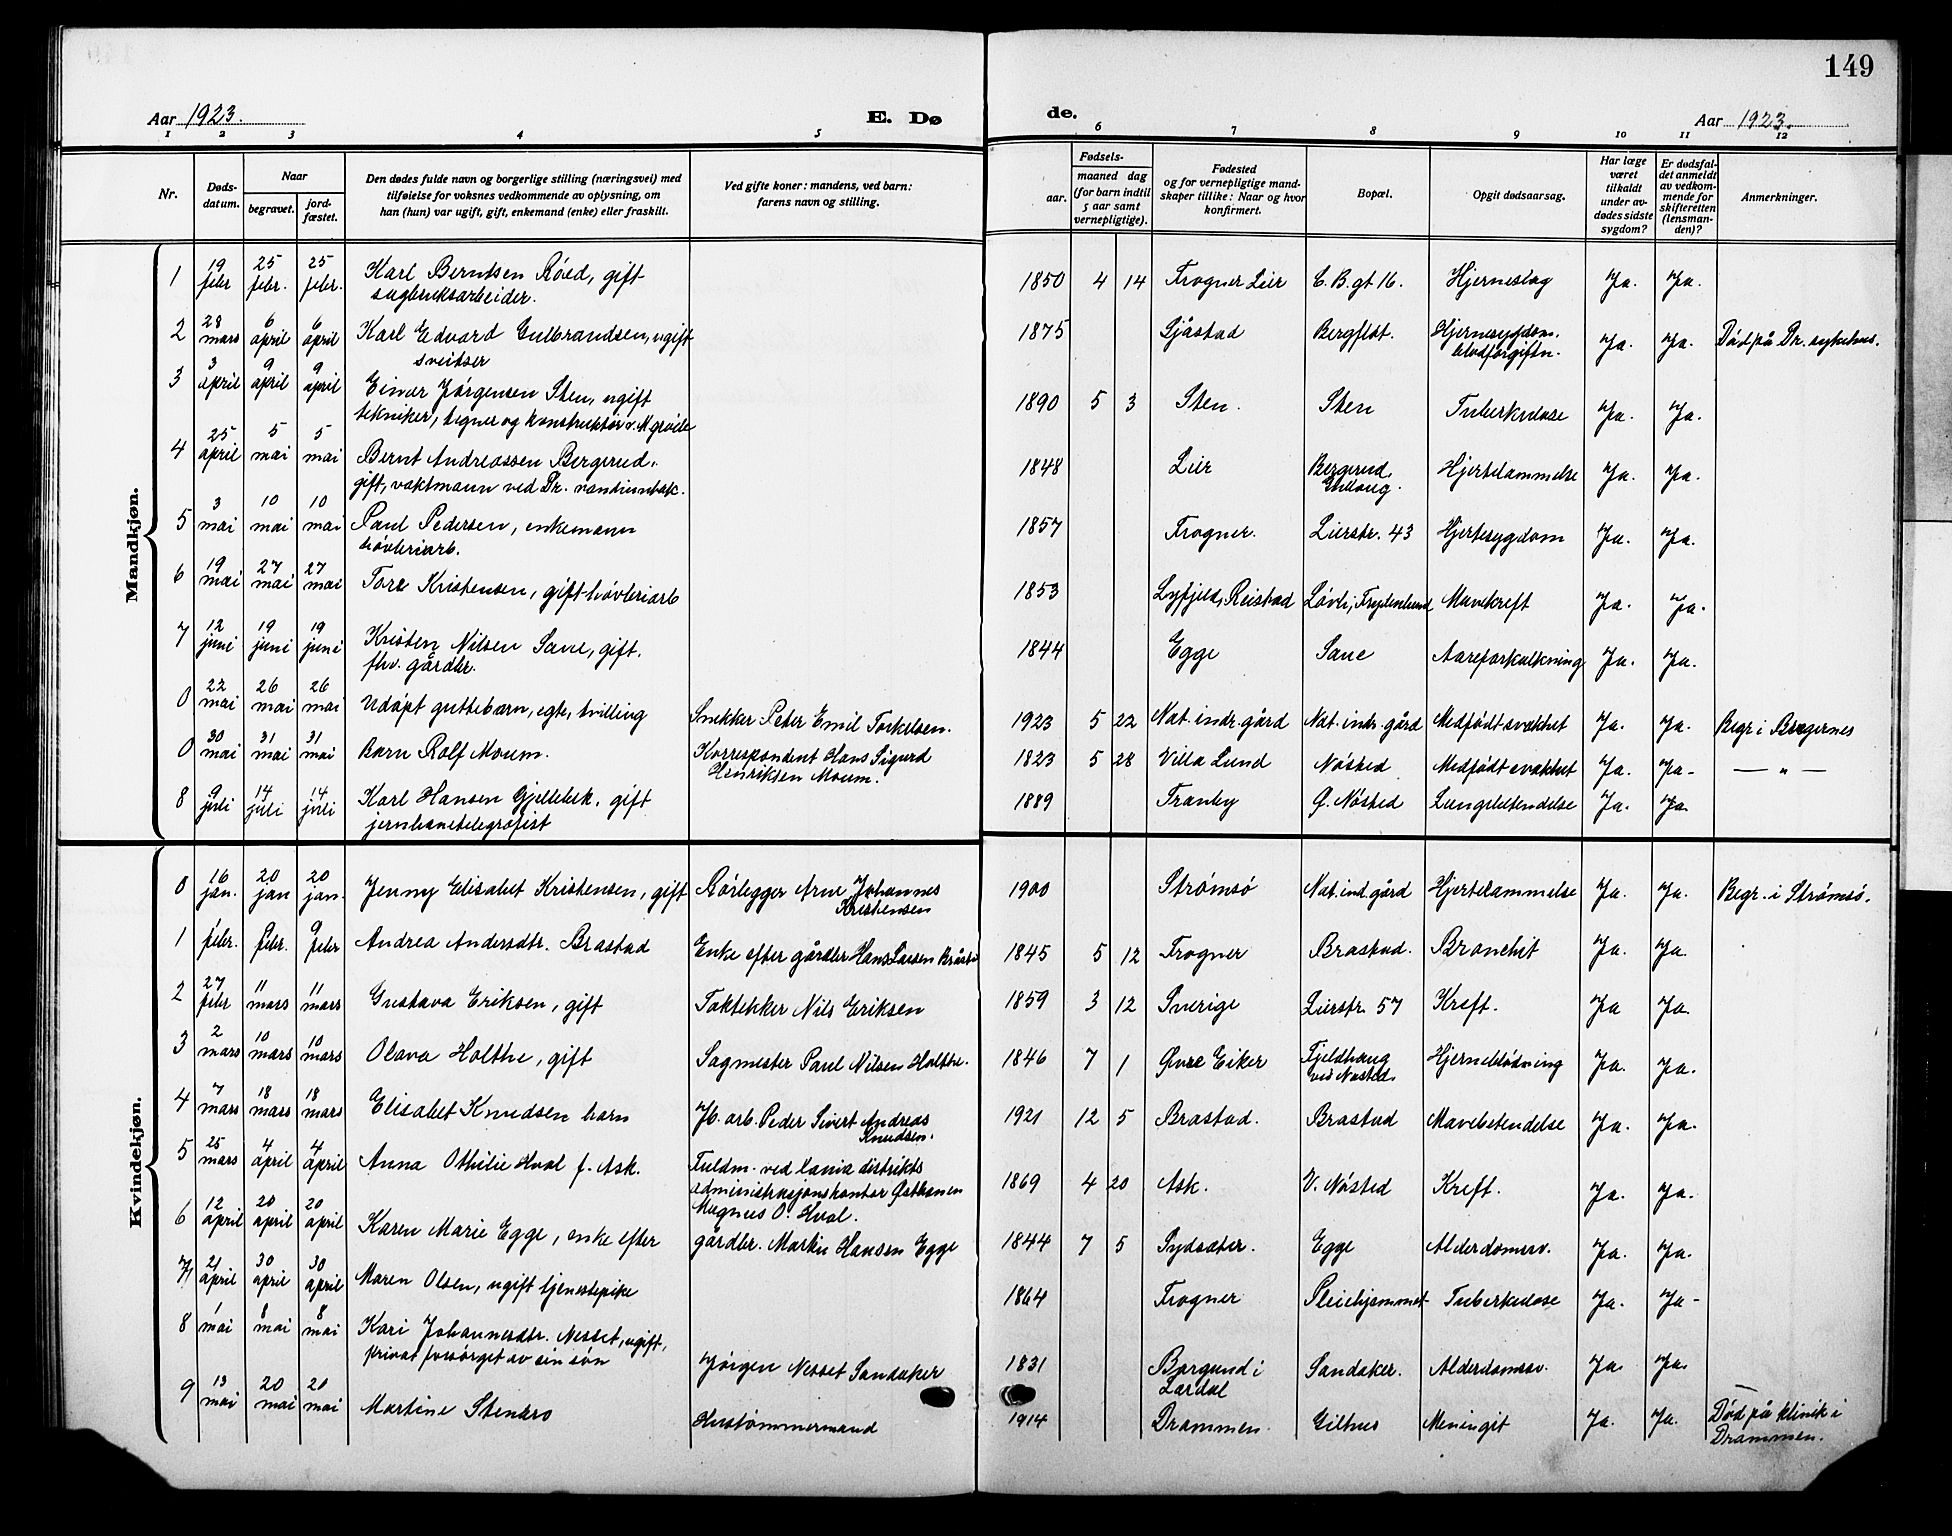 149
Aar 1923. E. Dø de. Aar 1923.
1 2 3 4 5 6 7 8 9 10 11 12
Nr. Døds-datum. Naar begravet. jord-fæstet. Den dødes fulde navn og borgerlige stilling (næringsvei) med tilføielse for voksnes vedkommende av oplysning, om han (hun) var ugift, gift, enkemand (enke) eller fraskilt. Ved gifte koner: mandens, ved barn: farens navn og stilling. Fødsels- aar. maaned dag (for barn indtil 5 aar samt vernepligtige). Fødested og for vernepligtige mand-skaper tillike: Naar og hvor konfirmert. Bopæl. Opgit dødsaarsag. Har læge været tilkaldt under av-dødes sidste sygdom? Er dødsfal-det anmeldt av vedkom-mende for skifteretten (lensman-den)? Anmerkninger.
Mandkjøn.
1 19 febr 25 febr. 25 febr. Karl Berntsen Róed, gift sagbruksarbeider. 1850 4 14 Frogner Lier C. B. gt 16. Hjerneslag Ja. Ja.
2 28 mars 6 april 6 april Karl Edvard Gulbrandsen, ugift sveitser 1875 Sjåstad Bergfløt. Hjernesygdom. blodforgiftn. Ja. Ja. Død på Dr. sykehus.
3 3 april 9 april 9 april Einar Jórgensen Sten, ugift tekniker, tegner og konstruktór v. 1890 5 3 Sten. Sten Tuberkulose Ja. Ja.
4 25 april 5 mai 5 mai Bernt Andreassen Bergerud, gift, vaktmann ved Dr. 1848 Lier Bergerud, Gullaug. Hjertelammelse Ja. Ja.
5 3 mai 10 mai 10 mai Paul Pedersen, enkemann hóvleriarb. 1857 Frogner. Lierstr. 43 Hjertesygdom Ja. Ja.
6 19 mai 27 mai 27 mai Tore Kristensen, gift hóvleriarb 1853 Lyfjeld, Reistad Lóvli, Frydenlund Mavekreft Ja. Ja.
7 12 juni 19 juni 19 juni Kristen Nilsen Save, gift. fhv. gårdbr. 1844 Egge Save Aareforkalkning Ja. Ja.
0 22 mai 26 mai 26 mai Udópt guttebarn, egte, tvilling Snekker Peter Emil Torkelsen. 1923 5 22 Nat. indr. gård Nat. indr. gård Medfódt svakhet Ja. Ja. Begr. i Bragernes
0 30 mai 31 mai 31 mai Barn Rolf Moum. Korrespondent Hans Sigurd Henriksen Moum. 1823 5 28 Villa Lund Nósted Medfódt svakhet Ja. Ja- — " —
8 9 juli 14 juli 14 juli Karl Hansen Gjellebek, gift jernbanetelegrafist 1889 Tranby G. Nósted Lungebetendelse Ja. Ja.
Kvindekjøn.
0 16 jan. 20 jan 20 jan. Jenny Elisabet Kristensen, gift Rórlegger Arne Johannes Kristensen 1900 Strømsø Nat. ind. gård Hjertelammelse Ja. Ja. Begr. i Strømsø.
1 1 febr. 9 febr. 9 febr Andrea Andersdtr. Brastad Enke efter gårdbr Hans Larsen 1845 5 12 Frogner Brastad. Bronchit Ja. Ja.
2 27 febr 11 mars 11 mars Gustava Eriksen, gift Taktekker Nils Eriksen 1859 3 12 Sverige Lierstr. 57 Kreft. Ja Ja.
3 2 mars 10 mars 10 mars Olava Holthe, gift Sagmester Paul Nilsen Holthe. 1846 7 1 Øvre Eiker Fjeldhaug ved Nøsted. Hjerneblødning Ja. Ja.
4 7 mars 18 mars 18 mars Elisabet Knudsen barn Jb. arb. Peder Sivert Andreas Knudsen. 1921 12 5 Brastad. Brastad Mavebetendelse Ja. Ja.
5 25 mars 4 april 4 april Anna Othilie Hval f. Ask. Fuldm. ved distrikts administrasjonskontor Magnus O. Hval. 1869 4 20 Ask. V. Nósted Kreft. Ja. Ja.
6 12 april 20 april 20 april Karen Marie Egge, enke efter gårdbr. Martin Hansen Egge 1844 7 5 Sydsæter. Egge Alderdomssv. Ja. Ja.
7 21 april 30 april 30 april Maren Olsen, ugift tjenestepike 1864 Frogner Pleiehjemmet Tuberkulose Ja. Ja-
8 1 mai 8 mai 8 mai Kari Johannesdtr. Nesset, ugift, privat forsórget av sin són Jórgen Nesset Sandaker 1831 Borgund i Lærdal Sandaker. Alderdomssv. Ja. Ja.
9 13 mai 20 mai 20 mai Martine Stenbro Hustømmermand 1914 Drammen. Gilhus Meningit Ja. Ja. Død på klinik i Drammen.